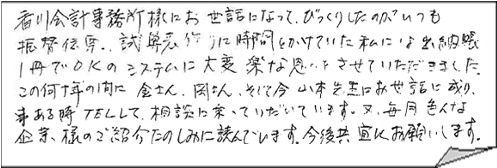 香川会計事務所様にお世話になって、びっくりしたのがいつも
振替伝票、試算表作りに時間をかけていた私には出納帳
1冊でOKのシステムに大変楽な思いをさせていただきました。
この何十年の内に金さん、岡さん、そして今山本先生にお世話に成り、
事ある時TELLして、相談に乗っていただいています。又、毎月色んな
企業様のご紹介たのしみに読んでいます。今後共宜にお願いします。